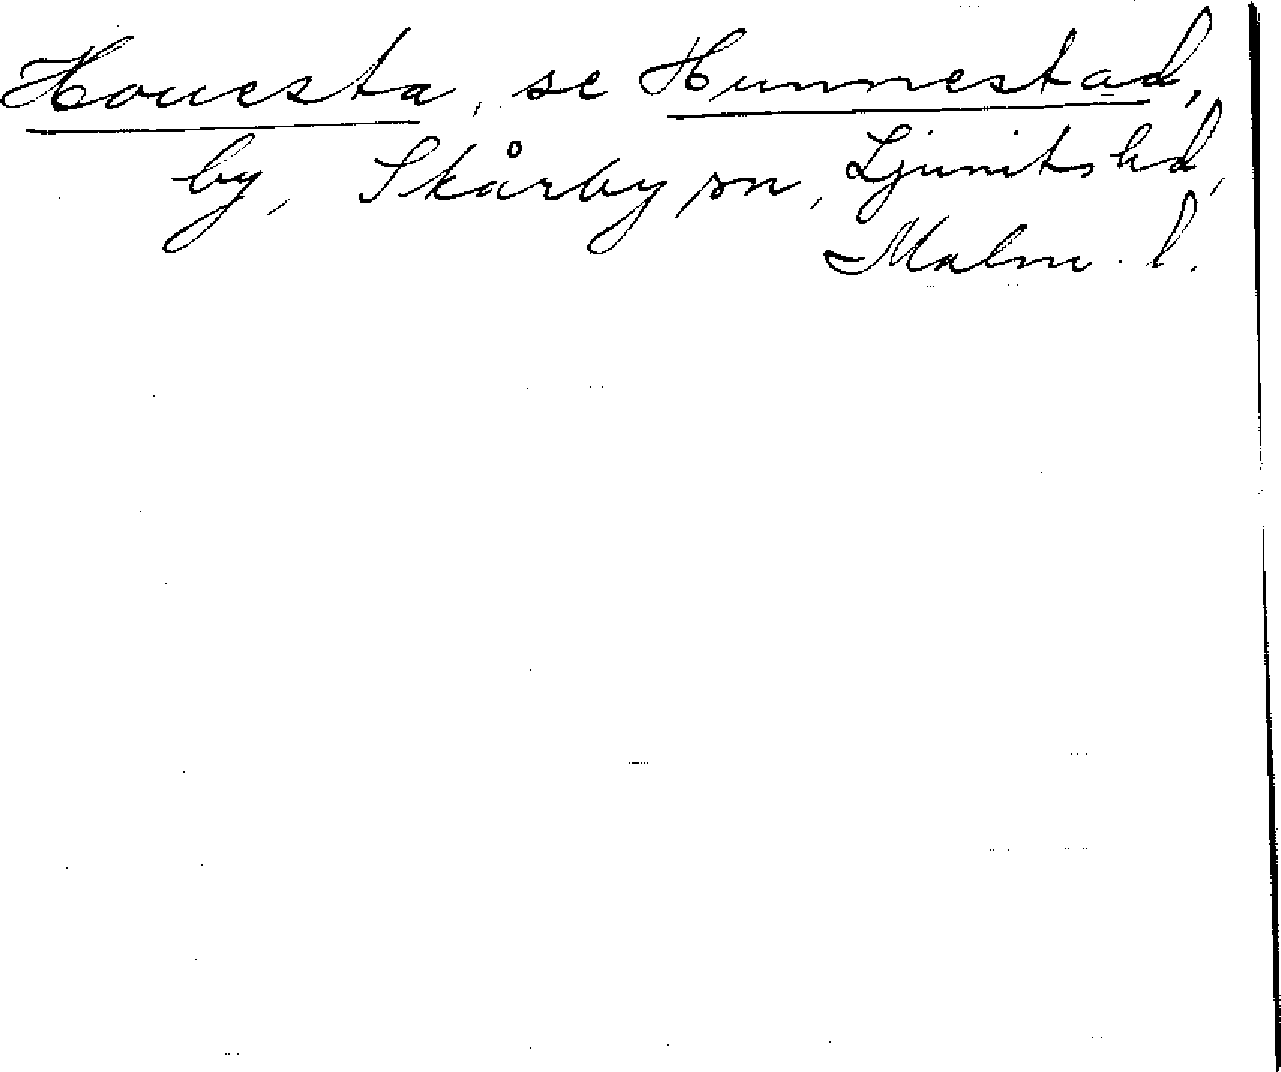 Houesta, se Hunnestad,
by, Skårby sn, Ljunits hd,
Malm. l.